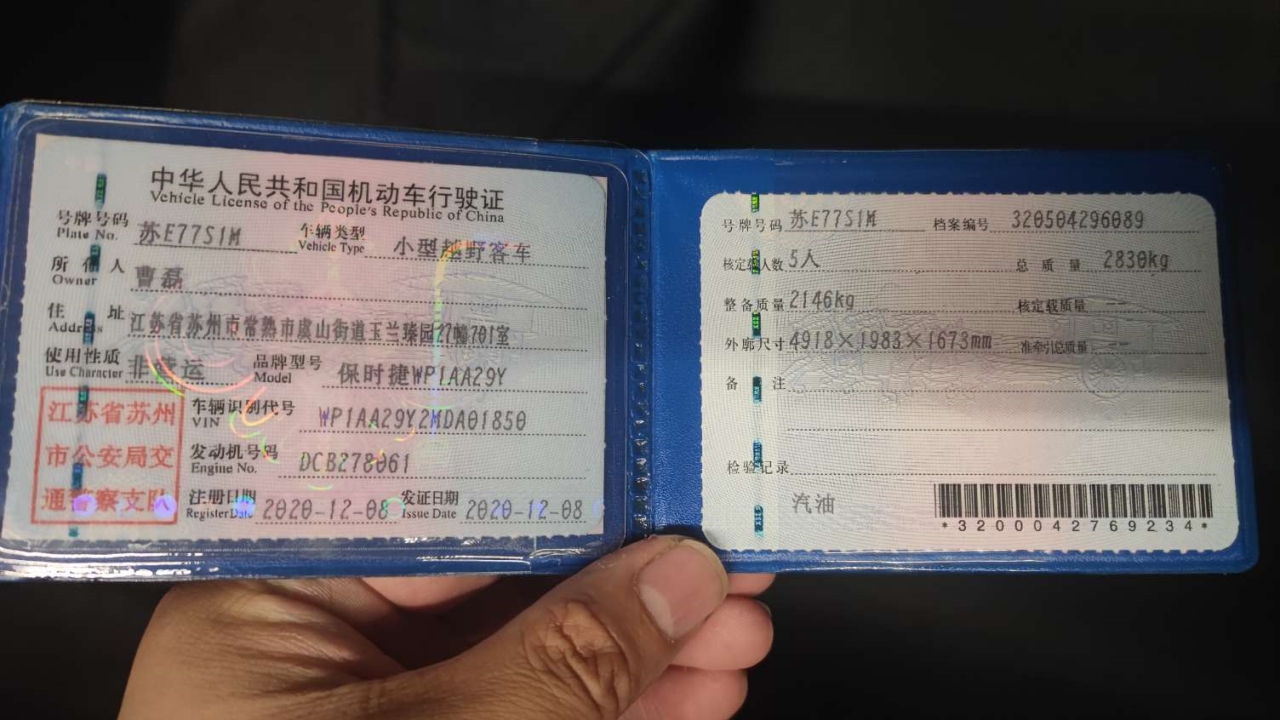 中华人民共和国机动车行驶证
Vehicle License of the People's Republic of China
号牌号码 苏E77S1M 车辆类型 小型越野客车
Plate No. Vehicle Type
所有人 曹磊
Owner
住址 江苏省苏州市常熟市虞山街道玉兰臻园27幢701室
Address
使用性质 非营运 品牌型号 保时捷WP1AA29Y
Use Character Model
江苏省苏州
市公安局交
通警察支队
车辆识别代号 WP1AA29Y2MDA01850
VIN
发动机号码 DCB278061
Engine No.
注册日期 2020-12-08 发证日期 2020-12-08
Register Date Issue Date
号牌号码 苏E77S1M 档案编号 320504296089
核定载人数 5人 总质量 2830kg
整备质量 2146kg 核定载质量 --
外廓尺寸 4918×1983×1673mm 准牵引总质量 --
备注
检验记录
汽油
*3200042769234*